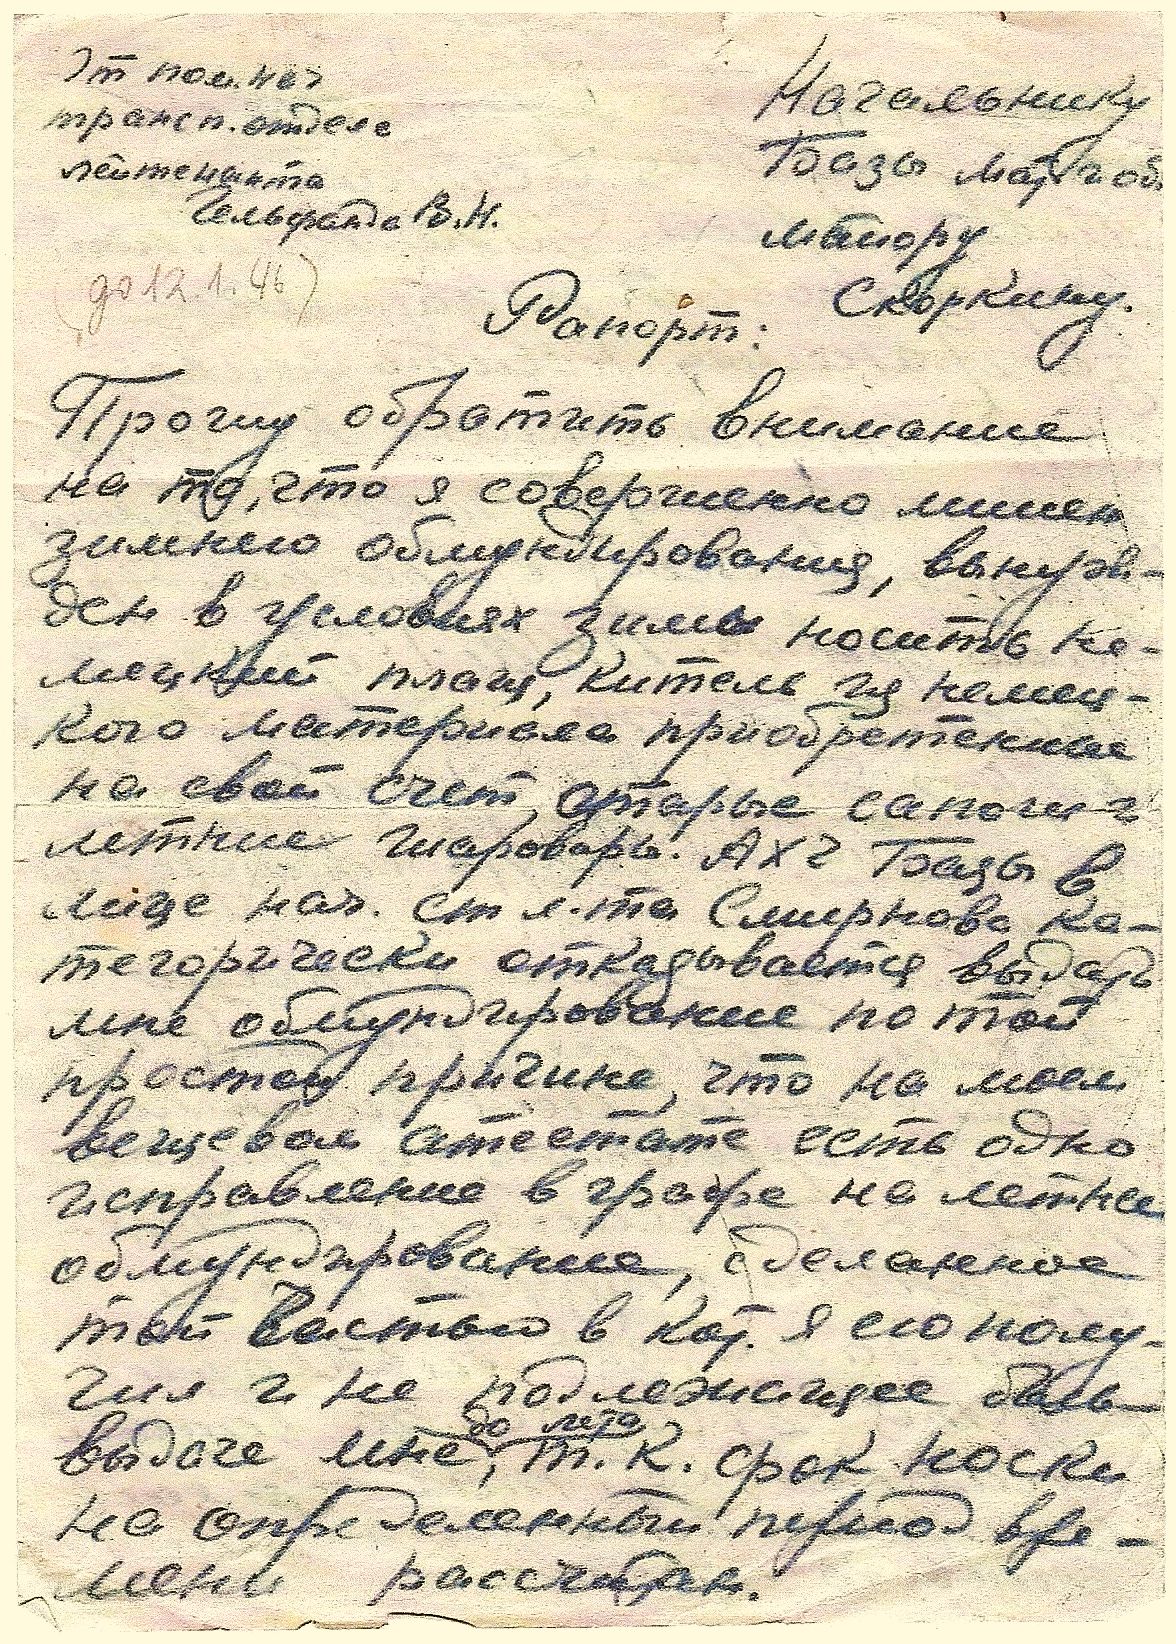 От пом. нач
трансп. отдела
лейтенанта
Гельфанда В.Н.
(до 12.1.46)
Начальнику
Базы мат. и об.
майору
Скоркину.
Рапорт:
Прошу обратить внимание
на то, что я совершенно лишен
зимнего обмундирования, вынуж-
ден в условиях зимы носить не-
мецкий плащ, китель из немец-
кого материала приобретенные
на свой счет, старые сапоги и
летние шаровары. АХЧ Базы в
лице нач. ст л-та Смирнова ка-
тегорически отказывается выдать
мне обмундирование по той
простой причине, что на моем
вещевом атестате есть одно
исправление в графе на летнее
обмундирование, сделанное
той частью в кот. я его полу-
чил и не подлежащее больш
выдаче мне до лета, т.к. срок носки
на определенный период вре-
мени рассчитан.